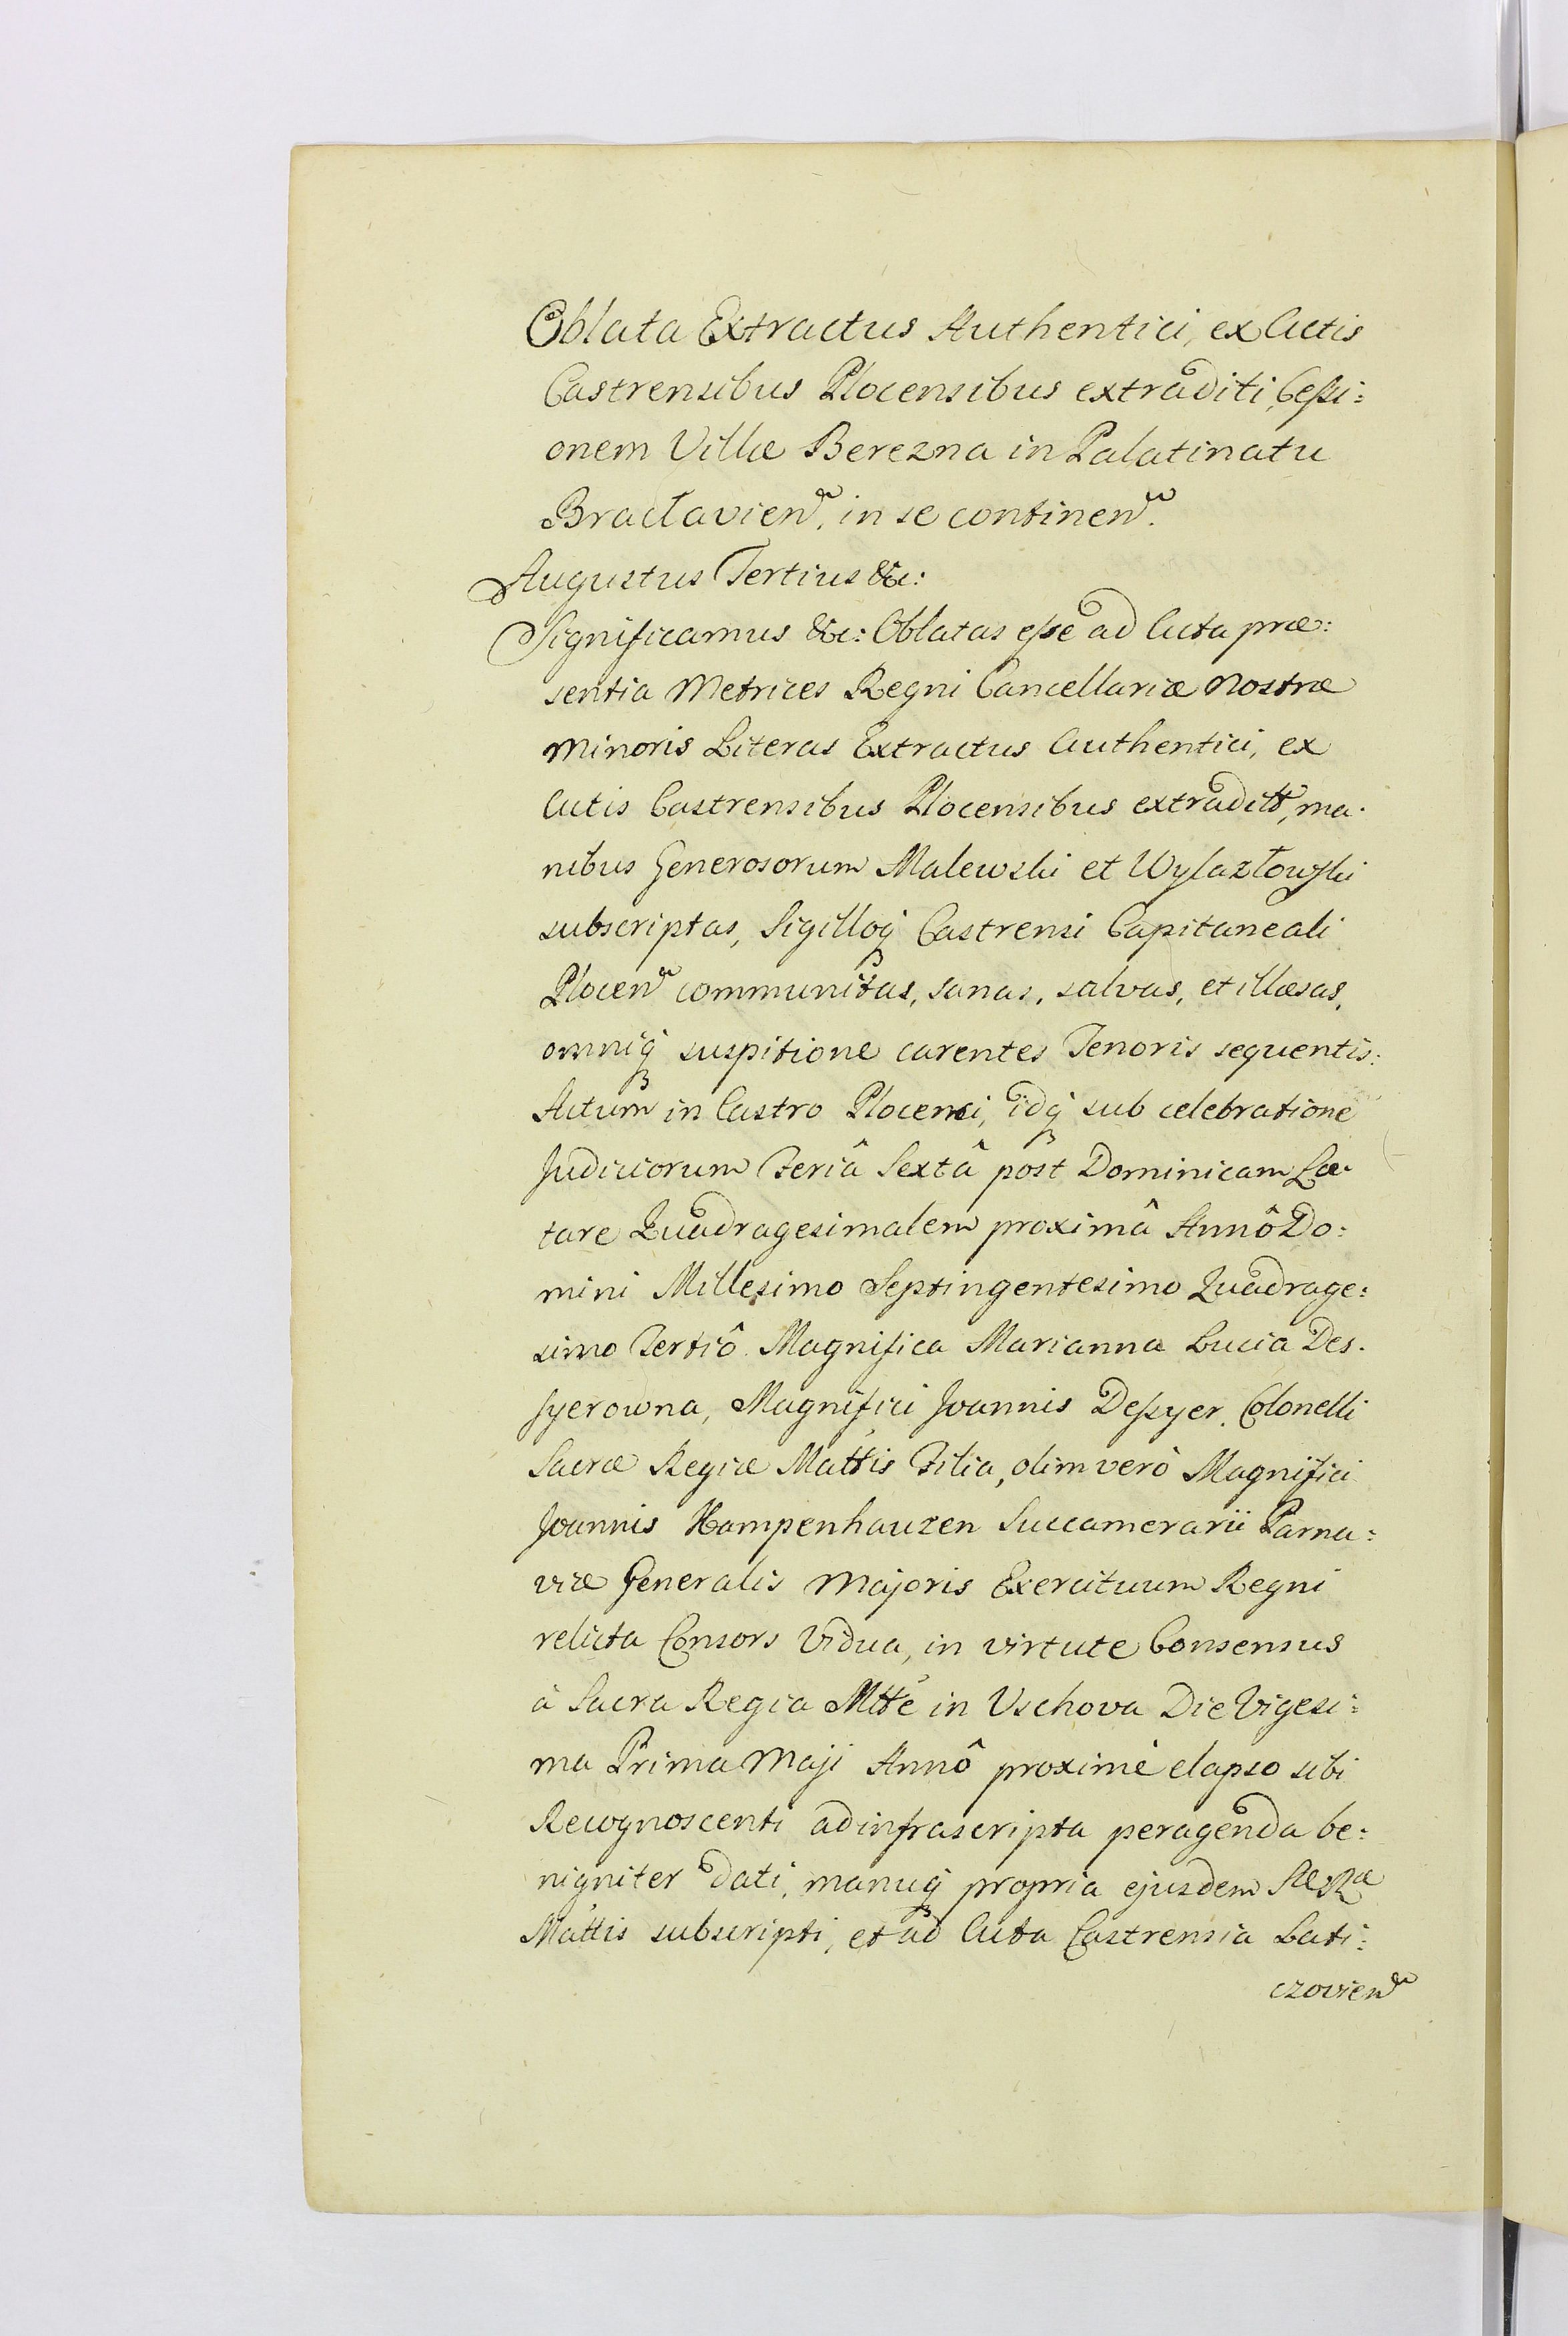 Oblata Extractus Authentici, ex Actis
Castrensibus Plocensibus extraditi, Cessi:
onem Villæ Berezna in Palatinatu
Braclavien. in se continen.
Augustus Tertius &c:
Significamus &c: Oblatas esse ad Acta præ:
sentia Metrices Regni Cancellariæ Nostræ
Minoris Literas Extractus Authentici, ex
Actis Castrensibus Plocensibus extraditt, ma:
nibus Generosorum Malewski et Wylazłowski
subscriptas, Sigilloq Castrensi Capitaneali
Plocen communitas, sanas, salvas, et illæsas,
omniq suspitione carentes Tenoris sequentis:
Actum in Castro Plocensi, idq sub celebratione
Judiciorum Feriâ Sextâ post Dominicam Læ:
tare Quadragesimalem proximâ Annô Do:
mini Millesimo Septingentesimo Quadrage:
simo Tertiô. Magnifica Marianna Lucia Des:
syerowna, Magnifici Joannis Dessyer, Colonelli
Sacræ Regiæ Mattis Filia, olim verò Magnifici
Joannis Kampenhauzen Succamerarii Parna:
viæ Generalis Majoris Exercituum Regni
relicta Consors Vidua, in virtute Consensus
à Sacra Regia Mtte in Vschova Die Vigesi:
ma Prima Maji Annô proximè elapso sibi
Recognoscenti ad infrascripta peragenda be:
nigniter dati, manuq propria ejusdem Sæ Ræ
Mattis subscripti, et ad Acta Castrensia Lati:
czovien